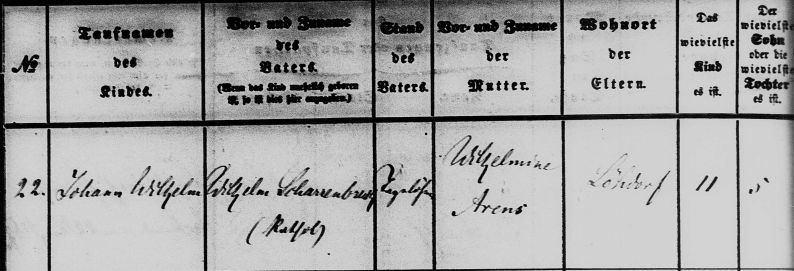 №
Taufnamen
des
Kindes.
Vor- und Zuname
des
Vaters.
(Wenn das Kind unehelich geboren
ist, so ist dies hier anzugeben.)
Stand
des
Vaters.
Vor- und Zuname
der
Mutter.
Wohnort
der
Eltern.
Das
wievielste
Kind
es ist.
Der
wievielste
Sohn
oder die
wievielste
Tochter
es ist.
22.
Johann Wilhelm
Wilhelm Scharrenbroich
(kathol)
Tagelöhner
Wilhelmine
Arens
Löhdorf
11
5